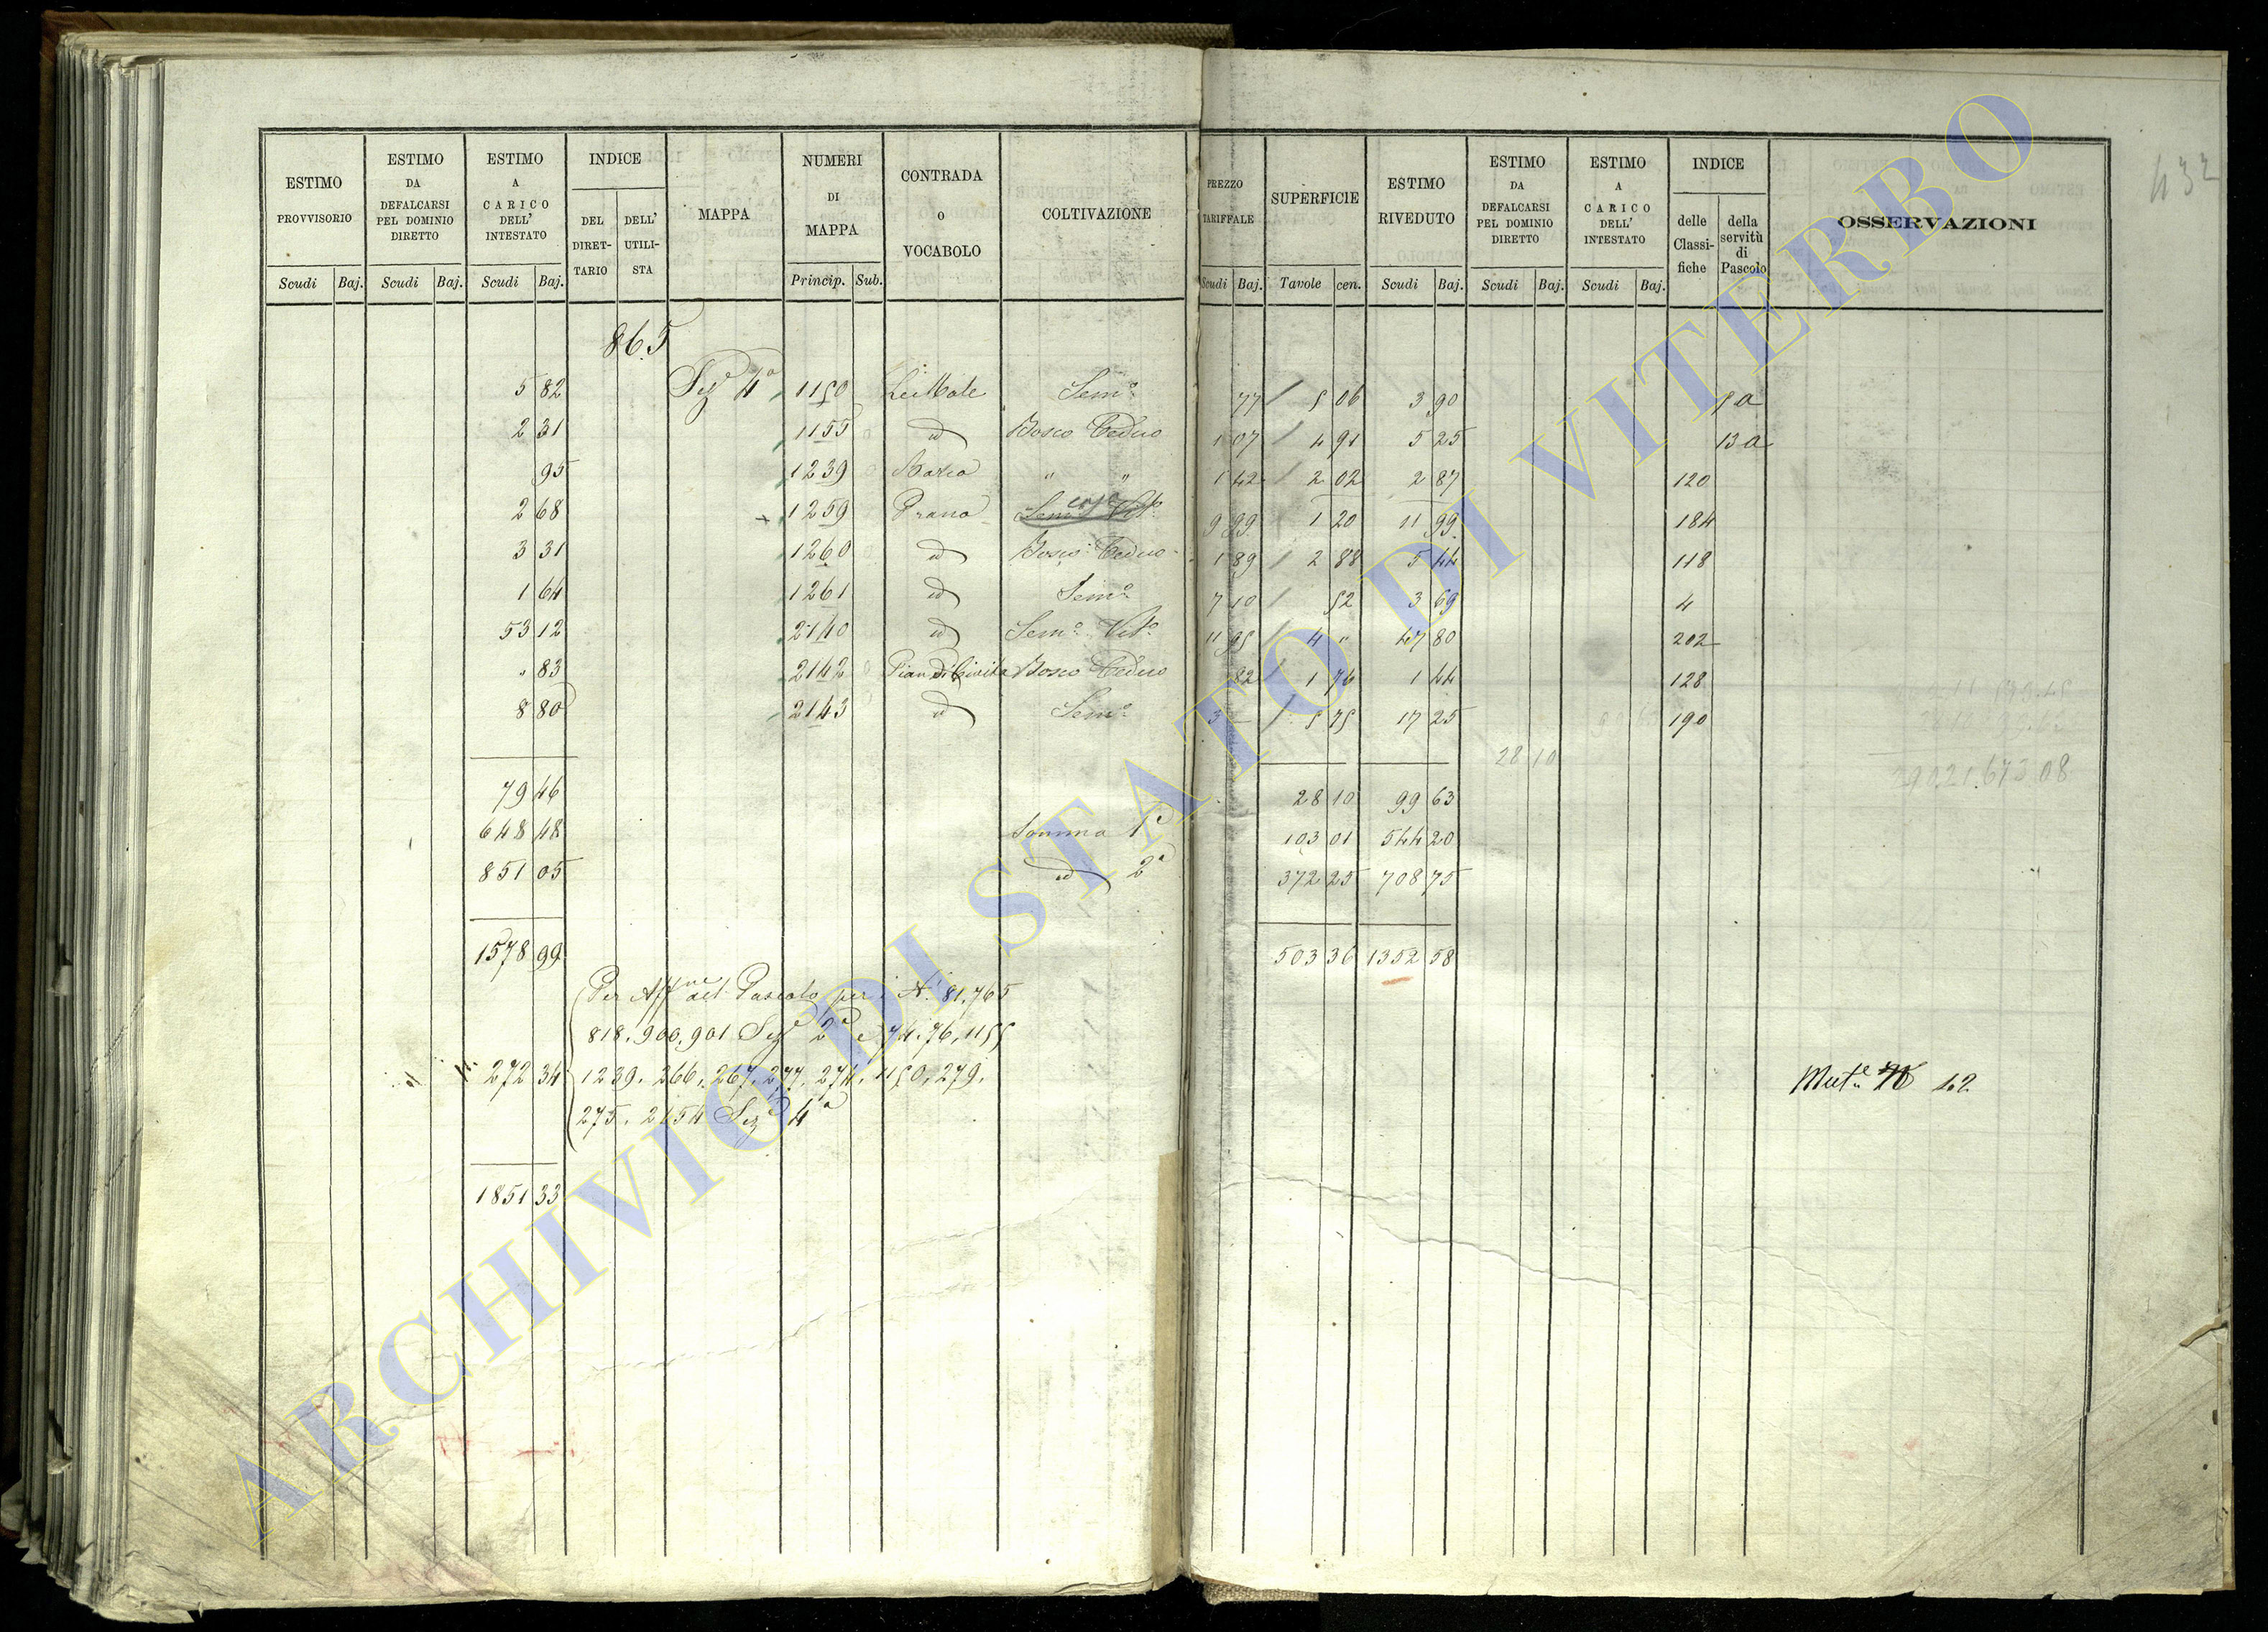 ESTIMO PROVVISORIO Scudi Baj. ESTIMO DA DEFALCARSI PEL DOMINIO DIRETTO Scudi Baj. ESTIMO A CARICO DELL' INTESTATO Scudi Baj. INDICE DEL DIRET-TARIO DELL' UTILI-STA MAPPA NUMERI DI MAPPA Princip. Sub. CONTRADA O VOCABOLO COLTIVAZIONE PREZZO TARIFFALE Scudi Baj. SUPERFICIE Tavole cen. ESTIMO RIVEDUTO Scudi Baj. ESTIMO DA DEFALCARSI PEL DOMINIO DIRETTO Scudi Baj. ESTIMO A CARICO DELL' INTESTATO Scudi Baj. INDICE delle Classi-fiche della servitù di Pascolo OSSERVAZIONI
432
865
5 82 Sez.e 4a 1150 Sem.o 77 5 06 3 90 5a
2 31 1155 id Bosco Ceduo 1 07 4 91 5 25 13a
95 1239 " " 1 42 2 02 2 87 120
2 68 1259 Prano Sem.o Vit.o casa 9 99 1 20 11 99 184
3 31 1260 id Bosco Ceduo 1 89 2 88 5 44 118
1 64 1261 id Sem.o 7 10 52 3 69 4
53 12 2140 id Sem.o Vit.o 11 95 4 " 47 80 202
" 83 2142 Pian di Civita Bosco Ceduo 82 1 76 1 44 128
8 80 2143 id Sem.o 3 — 5 75 17 25 190
28 10
79 46 28 10 99 63
29021.673 08
648 48 Somma 1a 103 01 544 20
851 05 id 2a 372 25 708 75
1578 99 503 36 1352 58
Per Aff.ne del Pascolo per i N.i 81, 765
818. 900. 901 Sez.e 2a e 74. 76, 1155
272 34 1239. 266. 267. 277. 274. 1150, 279.
275. 2154 Sez.e 4a
Mut.e N 12
1851 33
ARCHIVIO DI STATO DI VITERBO